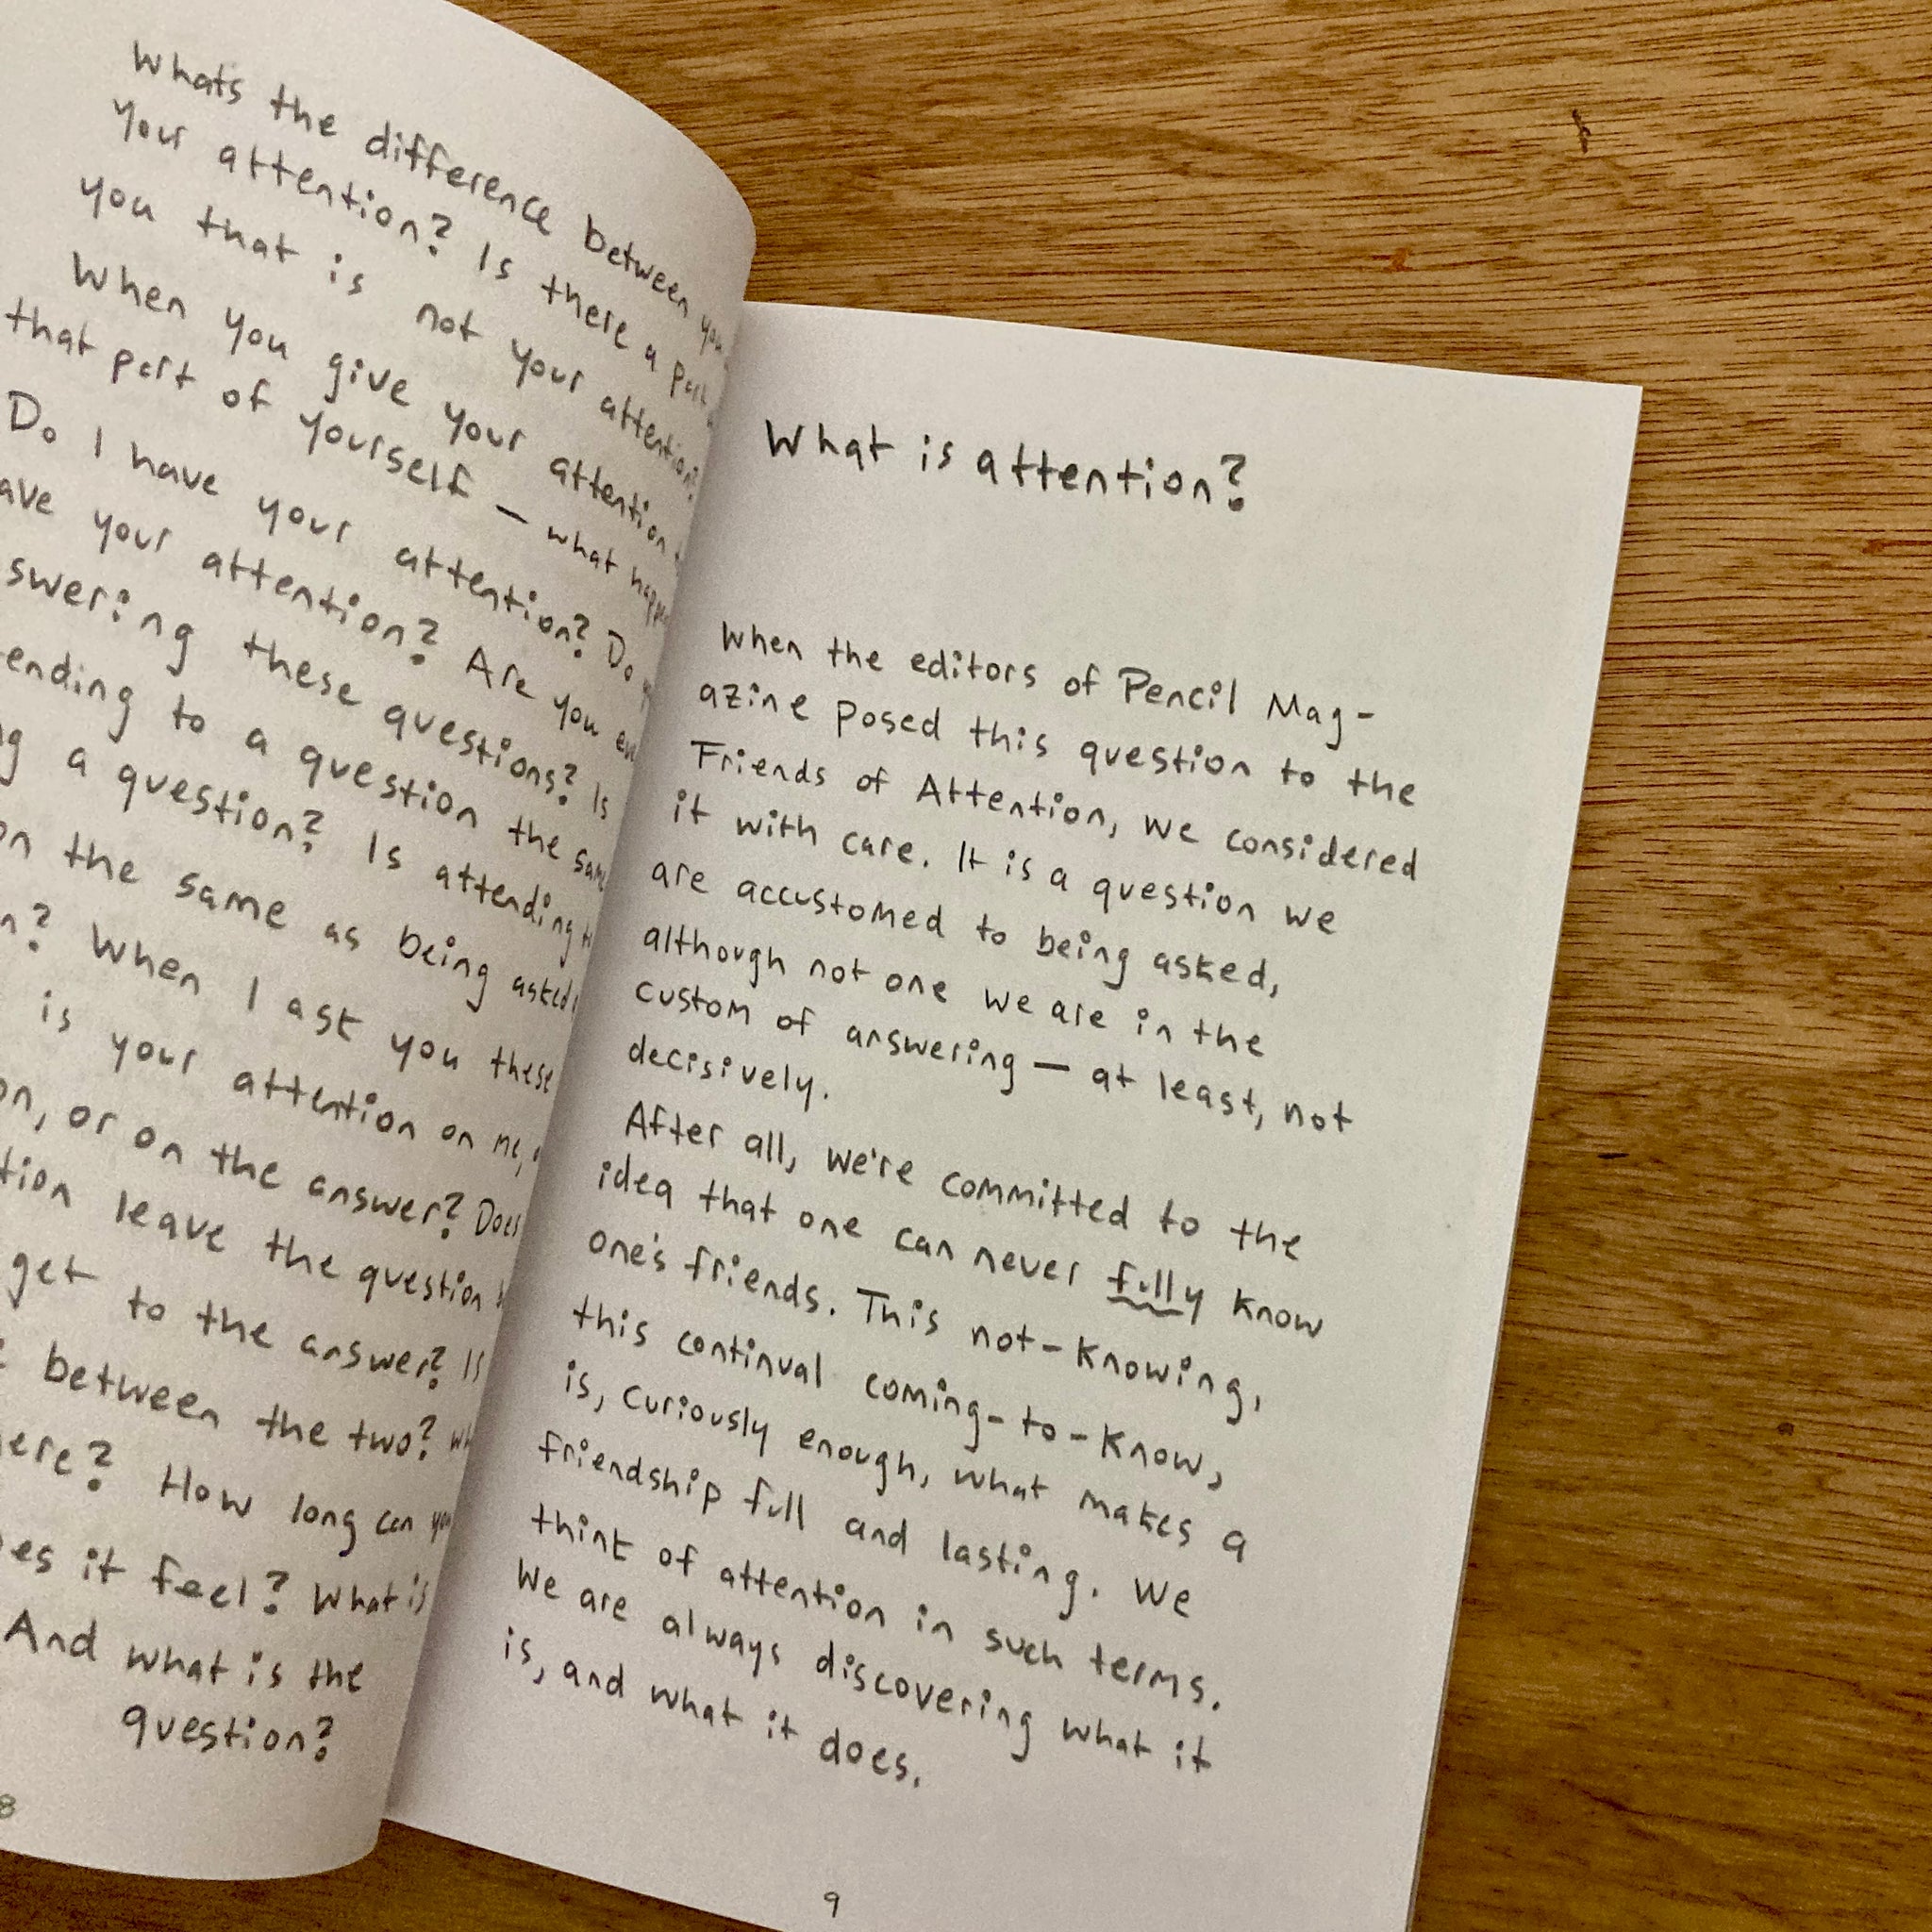 Whats the difference between you
Your attention? Is there a part
you that is not your attention?
When you give your attention
that part of yourself — what
Do I have your attention? Do
your attention? Are you
these questions? Is
to a question the same
a question? Is attending
the same as being asked
When I ask you these
is your attention on me,
or on the answer? Does
leave the question
get to the answer? Is
between the two?
How long can you
it feel? What is
And what is the
question?
8
What is attention?
When the editors of Pencil Mag-
azine posed this question to the
Friends of Attention, we considered
it with care. It is a question we
are accustomed to being asked,
although not one we are in the
custom of answering — at least, not
decisively.
After all, we're committed to the
idea that one can never fully know
one's friends. This not-knowing,
this continual coming-to-know,
is, curiously enough, what makes a
friendship full and lasting. We
think of attention in such terms.
We are always discovering what it
is, and what it does.
9